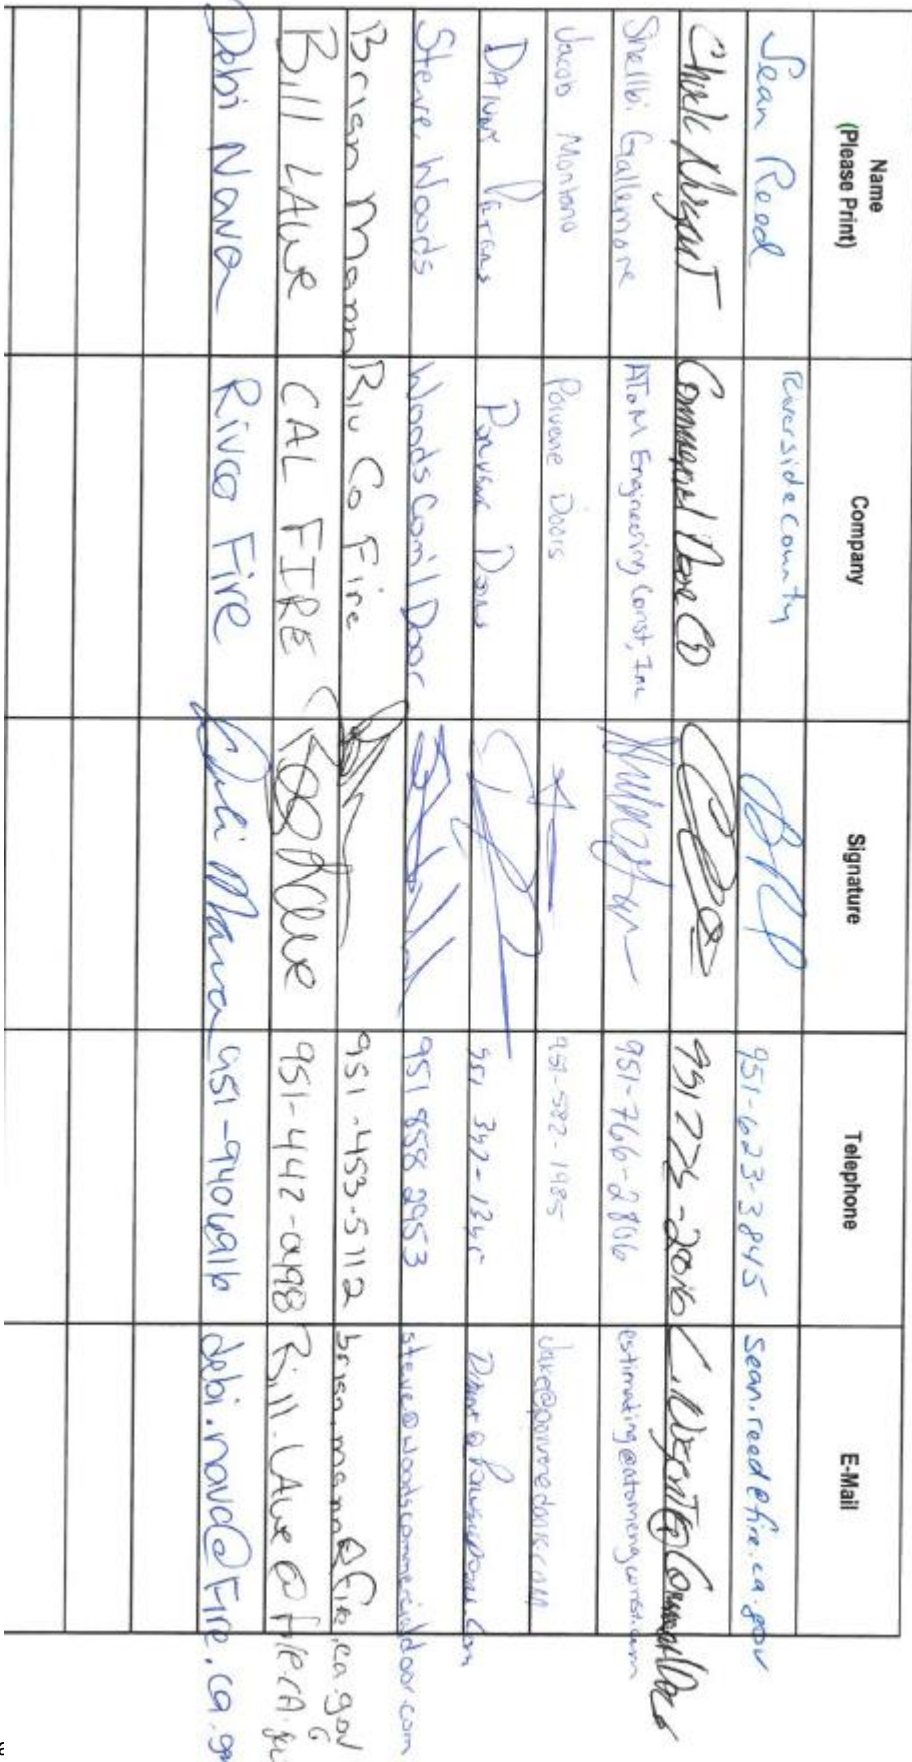 Name (Please Print) Company Signature Telephone E-Mail
Sean Reed Riverside County 951-623-3845 sean.reed@fire.ca.gov
Chuck Commercial Door CO
Shellbi Gallemore ATOM Engineering Const, Inc 951-766-2806 estimating@atomengconst.com
Jacob Montano Porvene Doors 951-582-1985 Jake@porvenedoors.com
Porvene Door
Steve Woods Woods Com'l Door 951 858 2953 steve@woodscommercialdoor.com
Brian Mann Riv Co Fire 951-453-5112 brian.mann@fire.ca.gov
Bill LAWE CAL FIRE 951-442-0498 Bill.LAWe@fire.CA.gov
Debi Nava Rivco Fire Debi Nava 951-9406916 debi.nava@Fire.ca.gov